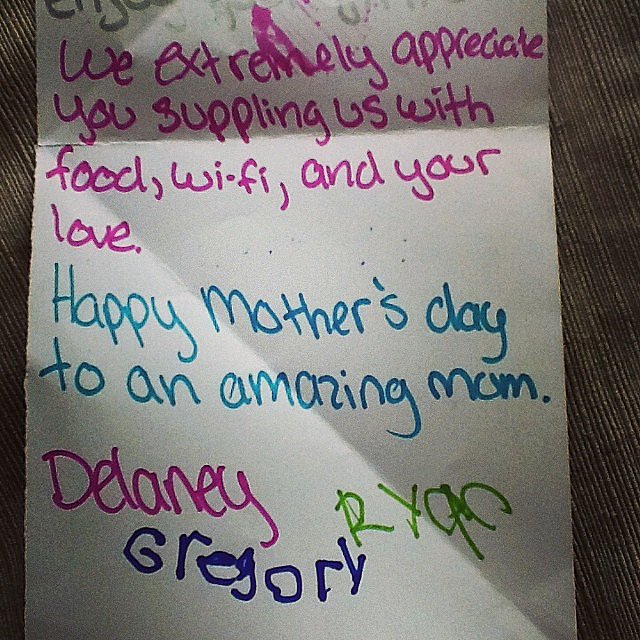 enjoy
We extremely appreciate
you suppling us with
food, wi-fi, and your
love.
Happy Mother's day
to an amazing mom.
Delaney
Ryan
Gregory